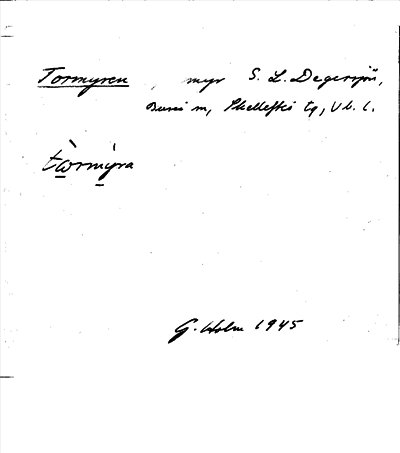 Tormyren, myr S. L. Degersjön,
Bureå sn, Skellefteå tg, Vb. l.
tωrmyra
G. Holm 1945